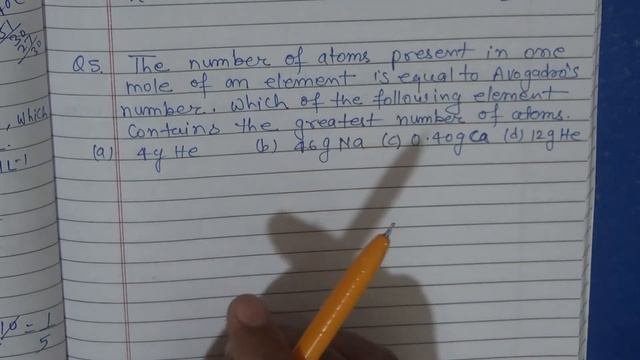 Q5. The number of atoms present in one
mole of an element is equal to Avogadro's
number. Which of the following element
contains the greatest number of atoms.
(a) 4g He (b) 46g Na (c) 0.40g Ca (d) 12g He
, which
1L-1
10 = 1
5